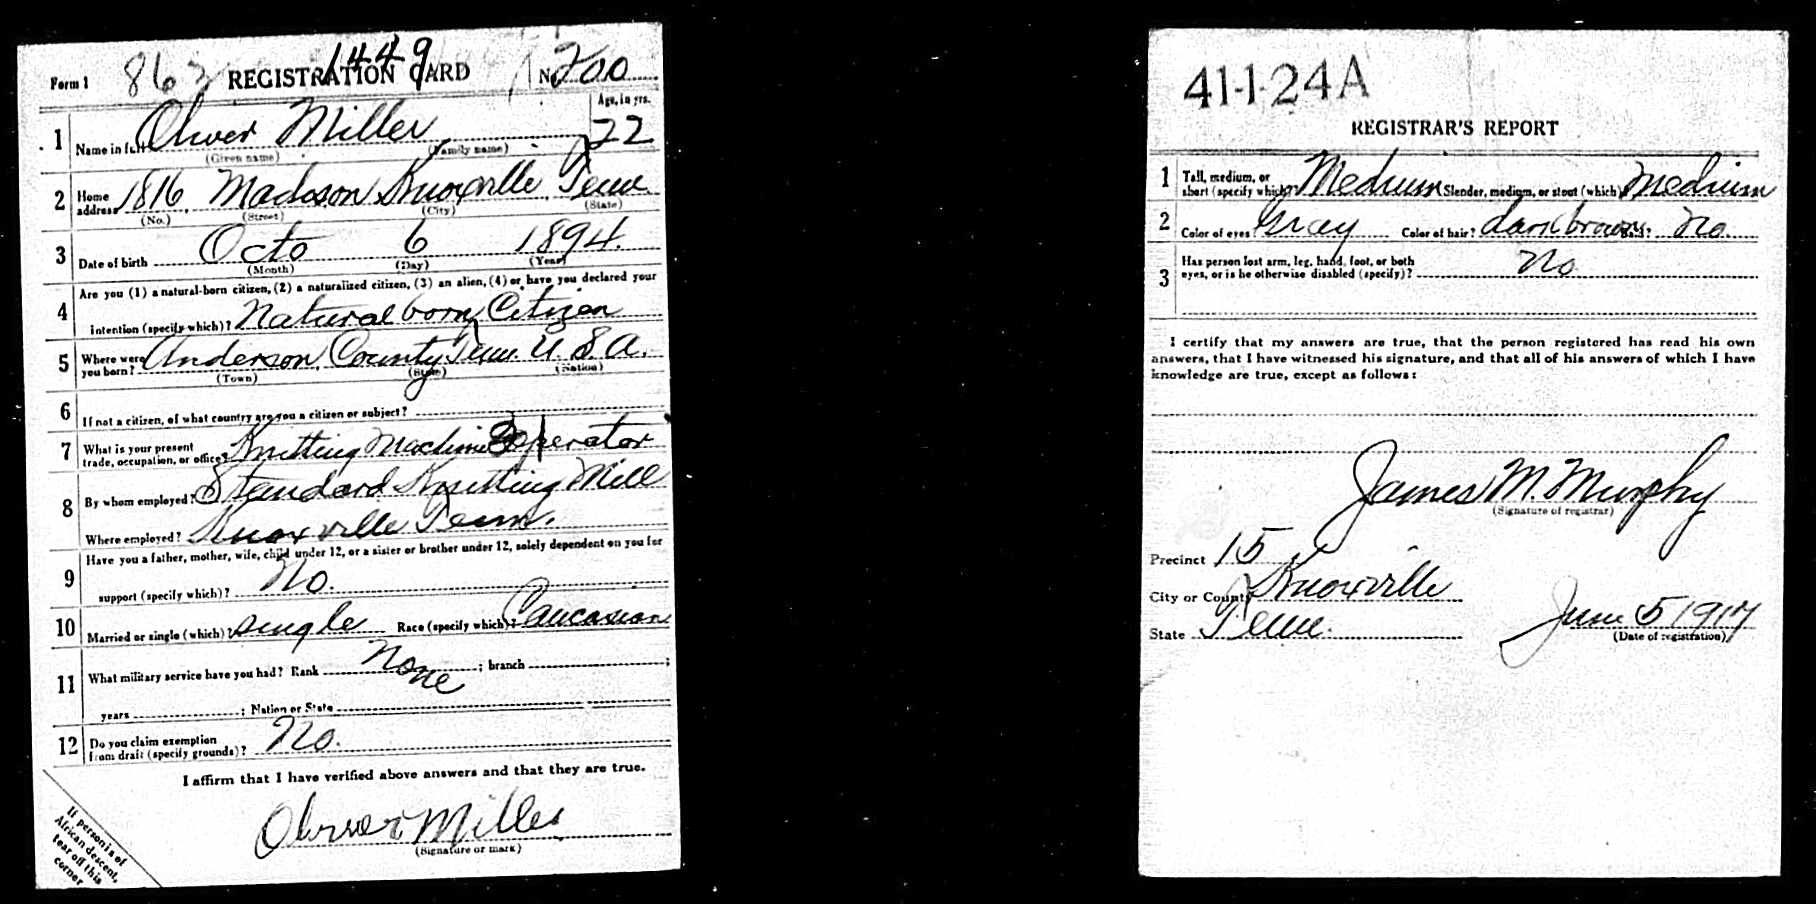 1449
Form 1 863 REGISTRATION CARD No. 200
Age, in yrs.
1 Name in full Oliver Miller 22
(Given name) (Family name)
2 Home address 1816 Madison Knoxville Tenn
(No.) (Street) (City) (State)
3 Date of birth Octo 6 1894.
(Month) (Day) (Year)
4 Are you (1) a natural-born citizen, (2) a naturalized citizen, (3) an alien, (4) or have you declared your
intention (specify which)? Natural born Citizen
5 Where were you born? Anderson County Tenn. U.S.A.
(Town) (State) (Nation)
6 If not a citizen, of what country are you a citizen or subject?
7 What is your present trade, occupation, or office? Knitting Machine Operator
8 By whom employed? Standard Knitting Mill
Where employed? Knoxville Tenn.
9 Have you a father, mother, wife, child under 12, or a sister or brother under 12, solely dependent on you for
support (specify which)? No.
10 Married or single (which)? single Race (specify which)? Caucasian
11 What military service have you had? Rank None ; branch ;
years ; Nation or State
12 Do you claim exemption from draft (specify grounds)? No.
I affirm that I have verified above answers and that they are true.
Oliver Miller
(Signature or mark)
If person is of
African descent,
tear off this
corner
41-1-24A
REGISTRAR'S REPORT
1 Tall, medium, or short (specify which)? Medium Slender, medium, or stout (which)? Medium
2 Color of eyes Gray Color of hair? dark brown Bald? No.
3 Has person lost arm, leg, hand, foot, or both
eyes, or is he otherwise disabled (specify)? No
I certify that my answers are true, that the person registered has read his own
answers, that I have witnessed his signature, and that all of his answers of which I have
knowledge are true, except as follows:
James M. Murphy
(Signature of registrar)
Precinct 15
City or County Knoxville
State Tenn. June 5 1917
(Date of registration)